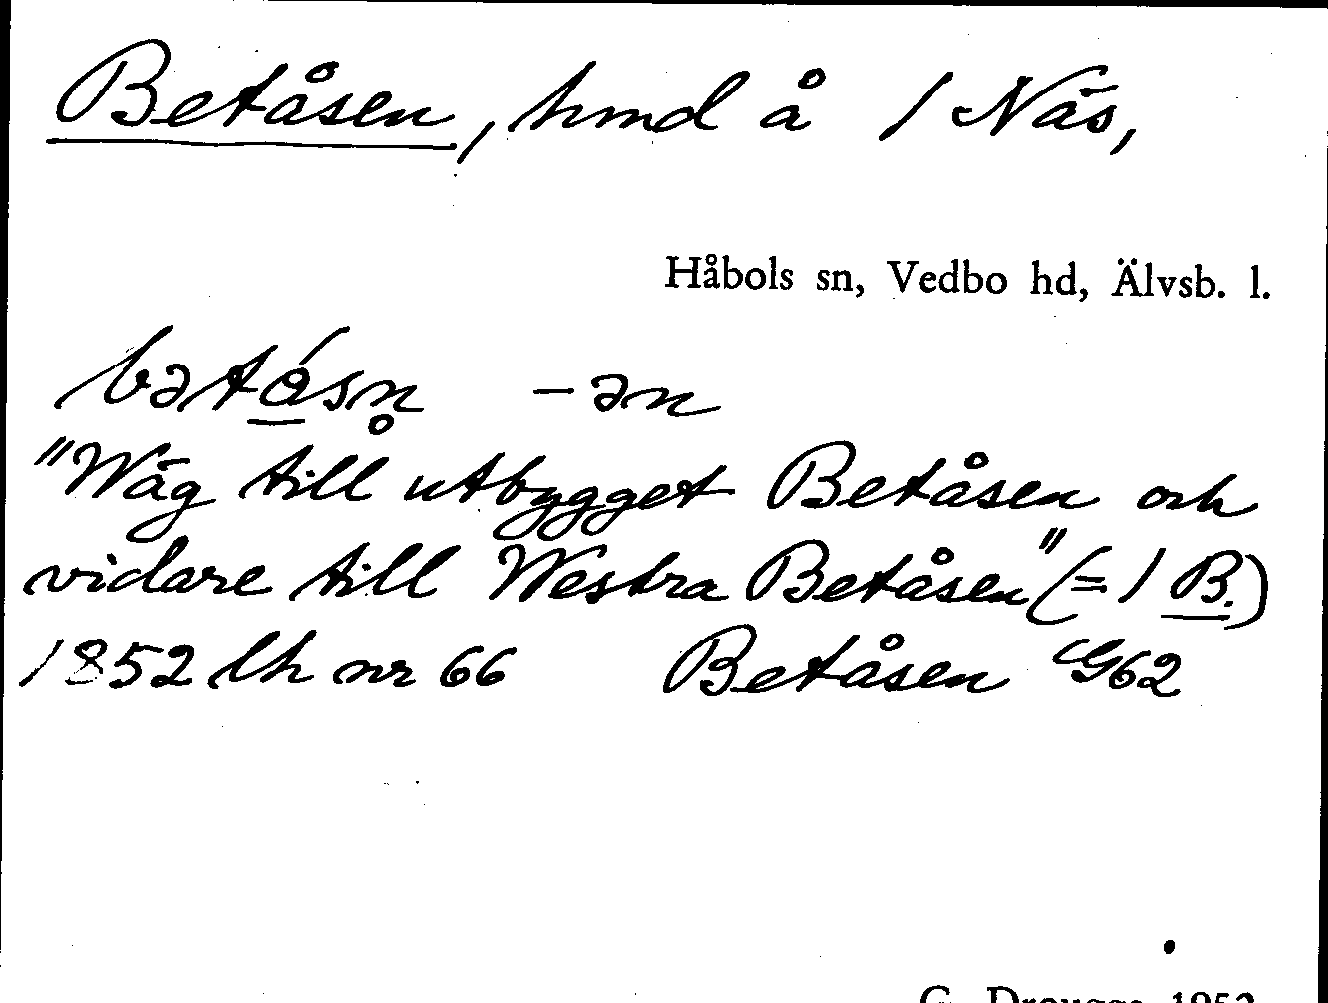 Betåsen, hmd å 1 Näs,
Håbols sn, Vedbo hd, Älvsb. l.
bətǻsn̥ -ən
"Wäg till utbygget Betåsen och
vidare till Westra Betåsen" (= 1 B.)
1852 lh nr 66 Betåsen G62
G. Drougge 1952